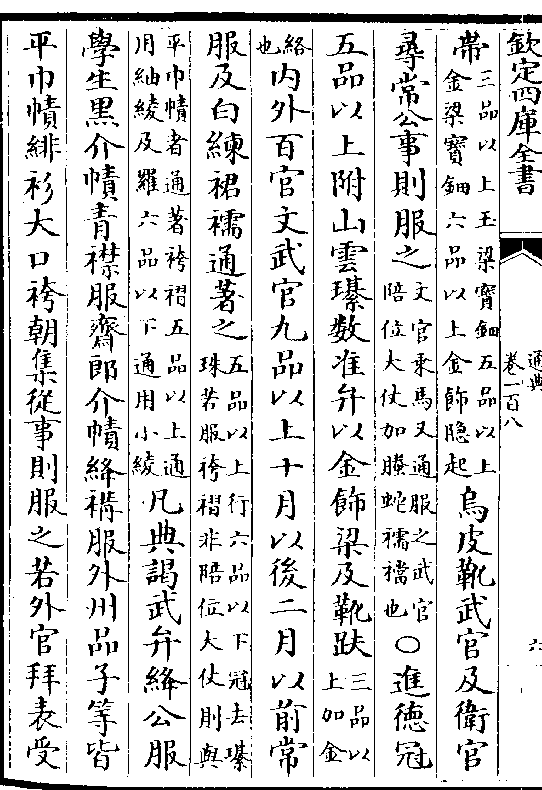 欽定四庫全書
通典
卷一百八
六
帶三品以上玉梁寳鈿五品以上金梁寳鈿六品以上金飾隠起烏皮靴武官及衛官
尋常公事則服之文官乘馬又通服之武官陪位大仗加螣蛇襦襠也○進徳冠
五品以上附山雲璂数准弁以金飾梁及靴趺三品以上加金
絡也內外百官文武官九品以上十月以後二月以前常
服及白練裙襦通著之五品以上行六品以下冠去璂珠若服袴褶非陪位大仗則與
平巾幘者通著袴褶五品以上通用紬綾及羅六品以下通用小綾凡典謁武弁絳公服
學生黑介幘青襟服齋郎介幘絳褠服外州品子等皆
平巾幘緋衫大口袴朝集從事則服之若外官拜表受